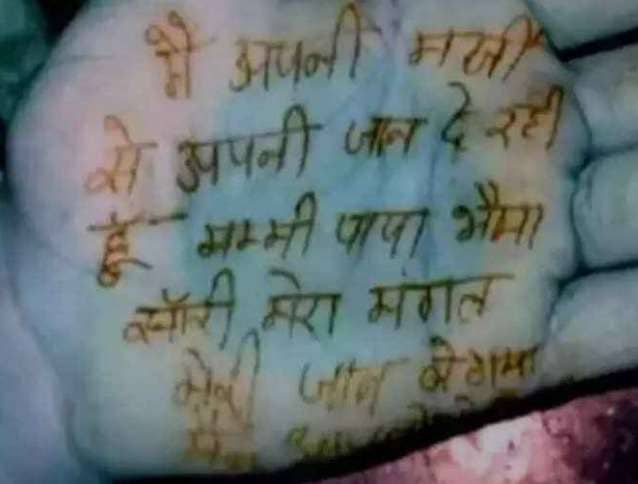 मै अपनी मर्जी
से अपनी जान दे रही
हूँ मम्मी पापा भैया
सॉरी मेरा मंगल
मेरी जान ले गया